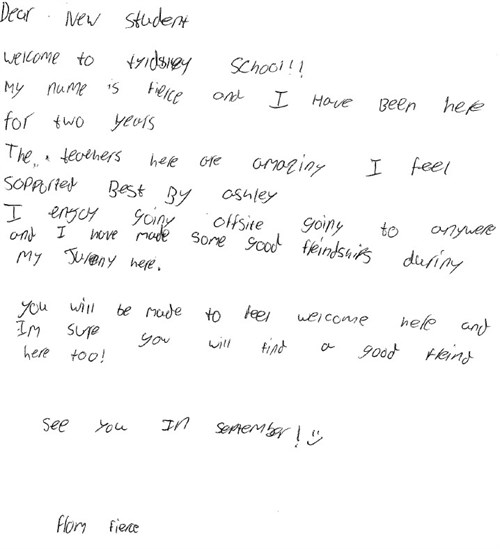 Dear New student
welcome to tyldsley school!!
My name is fierce and I have been here
for two years
The teachers here are amaziny I feel
sopported Best By ashley
I enjoy goiny offsite going to anywere
and I have made some good freindships duriny
my Jurony here.
you will be made to feel welcome here and
Im sure you will find a good freind
here too!
see you In September! :)
from fierce